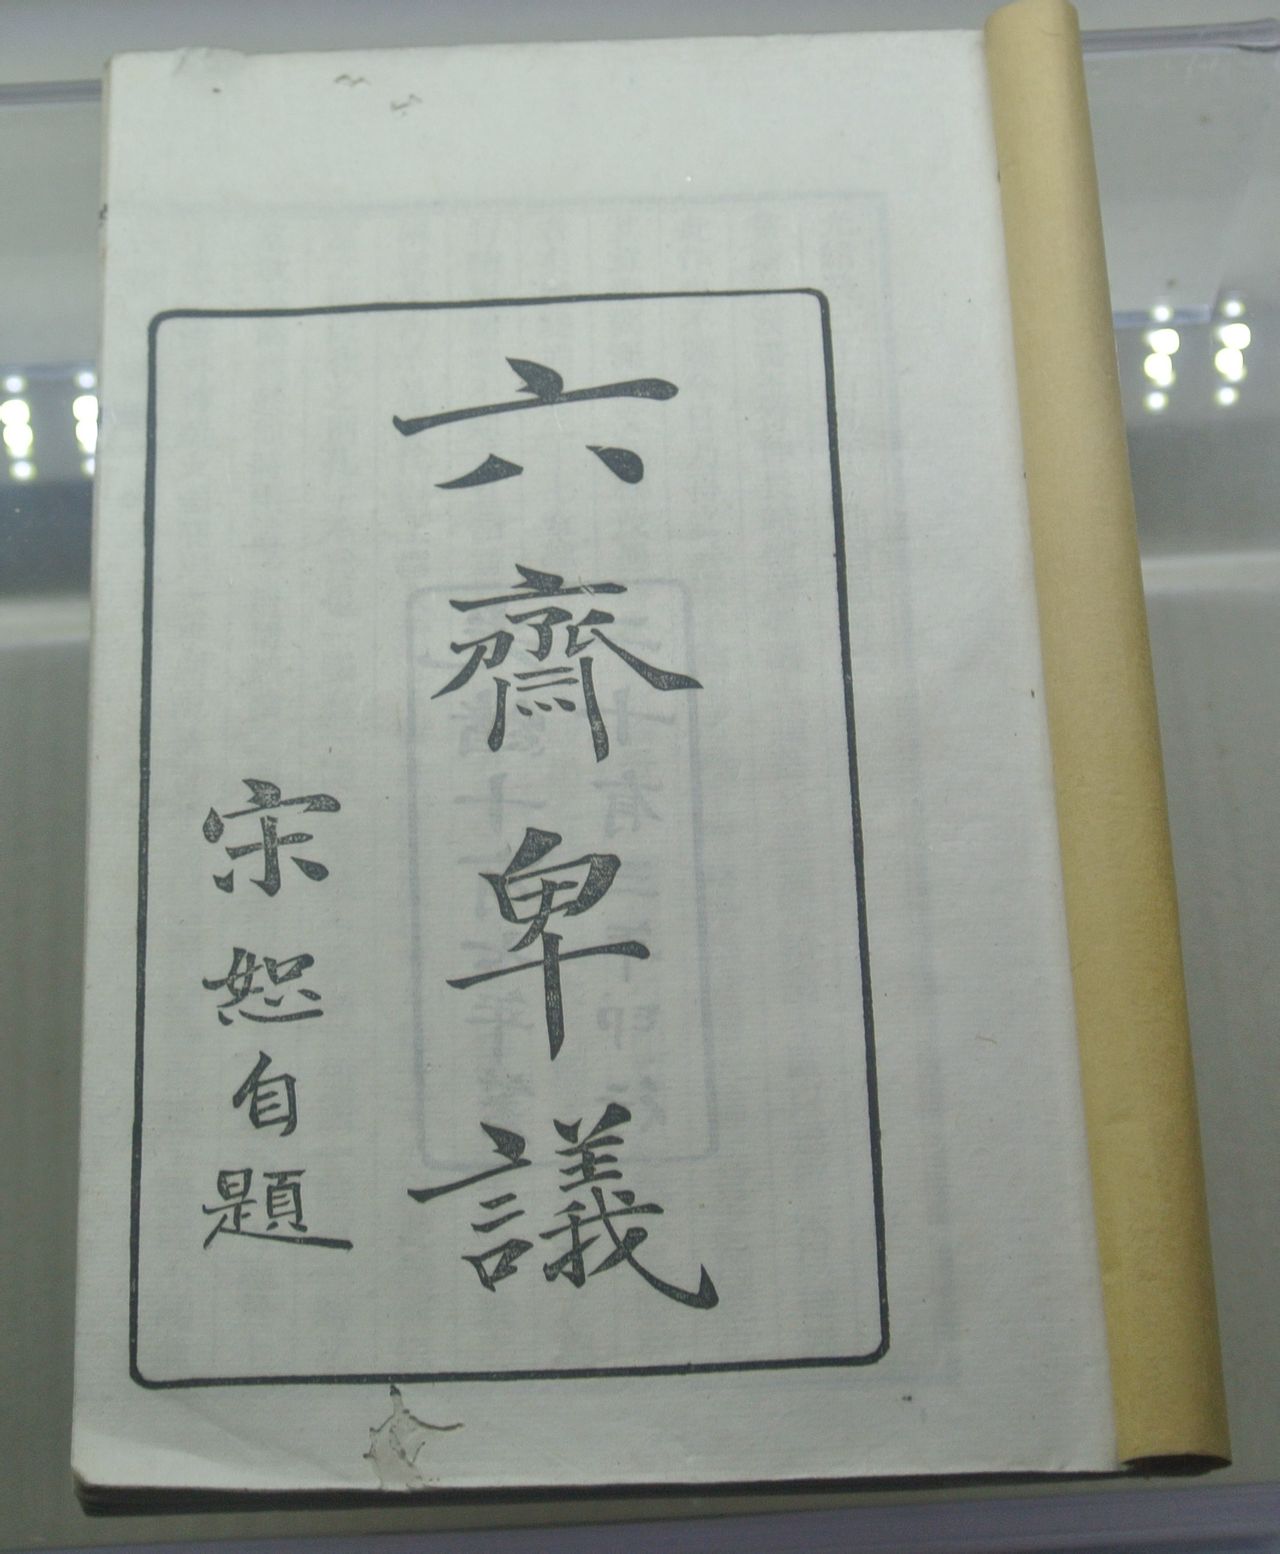 六齋卑議
宋恕自題